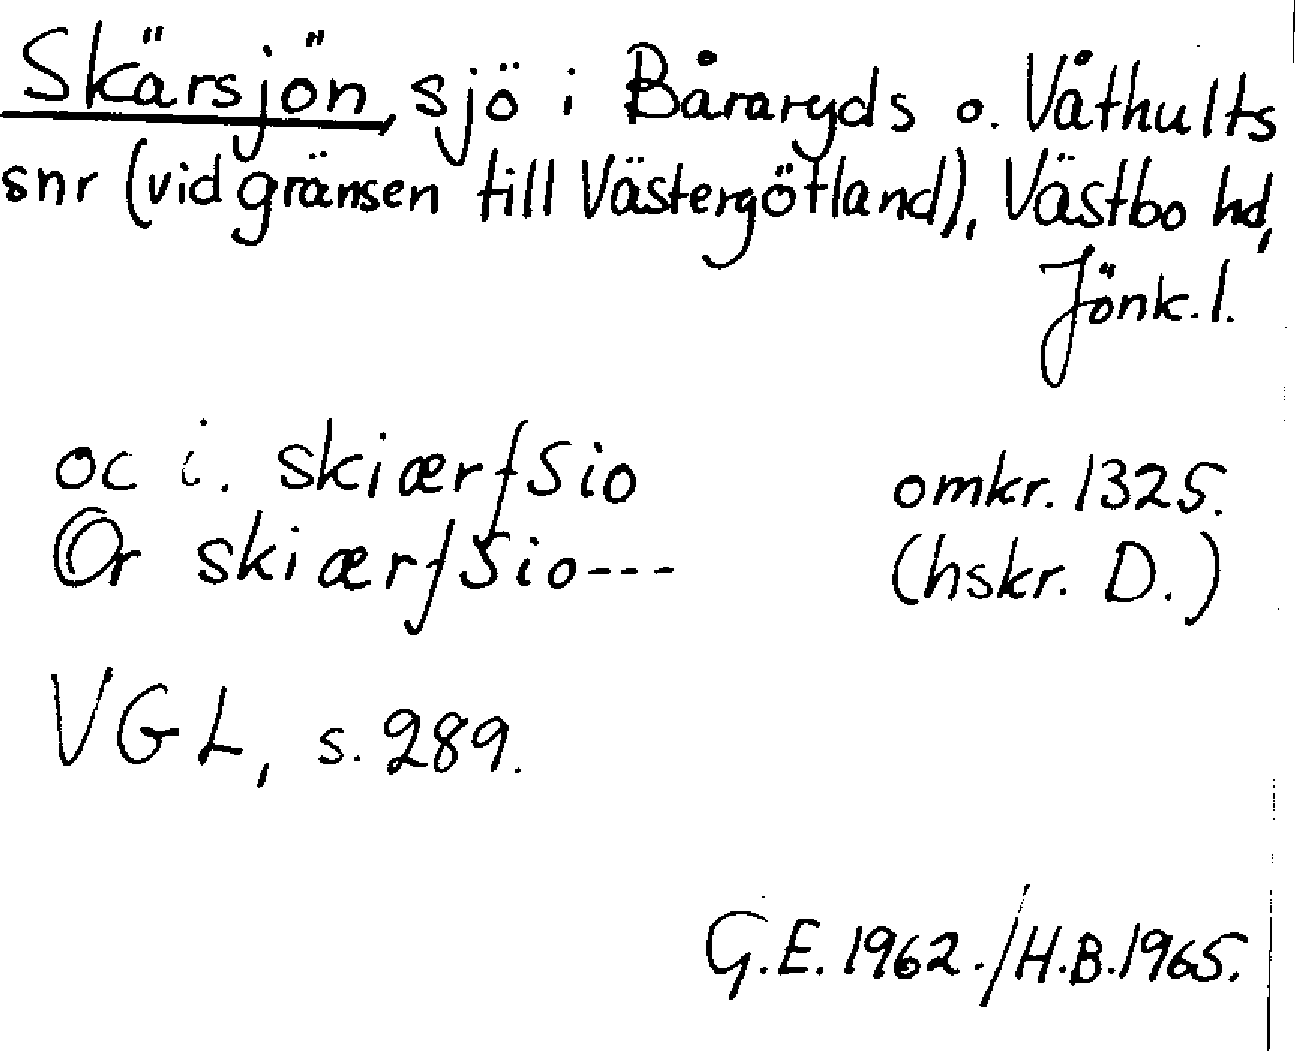 Skärsjön, sjö i Båraryds o. Våthults
snr (vid gränsen till Västergötland), Västbo hd,
Jönk. l.
oc i. skiærfSio omkr. 1325.
Or skiærfSio--- (hskr. D.)
VGL, s. 289.
G.E. 1962./H.B. 1965.